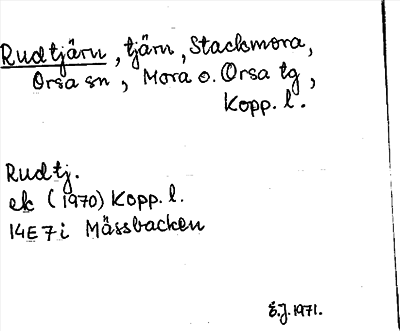 Rudtjärn, tjärn, Stackmora,
Orsa sn, Mora o. Orsa tg,
Kopp. l.
Rudtj.
ek (1970) Kopp. l.
14E7i Mässbacken
E.J. 1971.